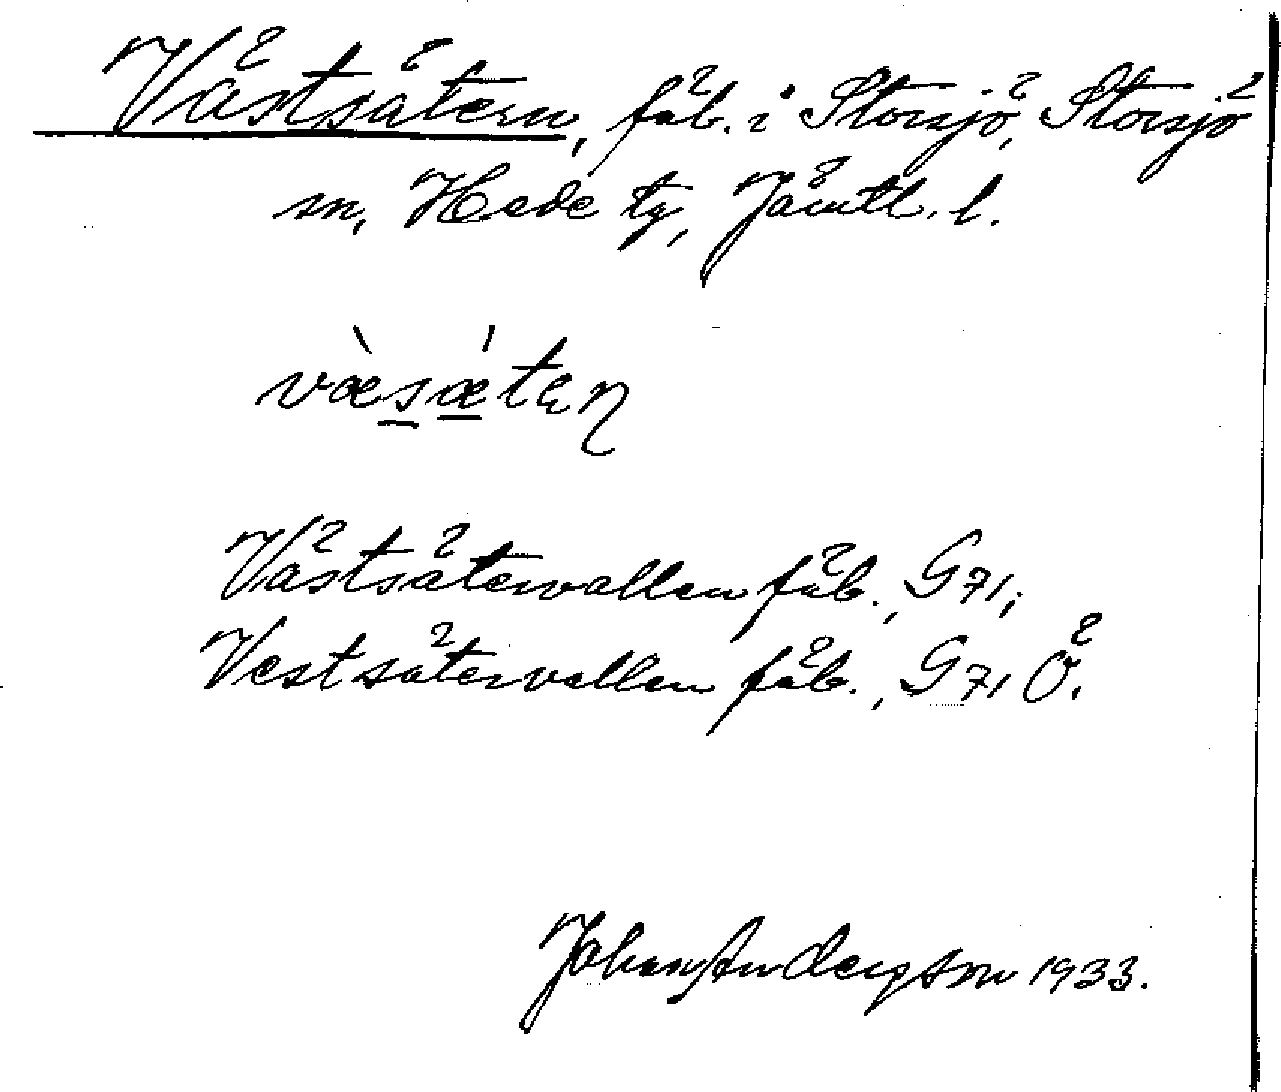 Västsätern, fäb. i Storsjö, Storsjö
sn, Hede tg, Jämtl. l.
væ̀sǽten
Västsätervallen fäb., G71;
Vestsätervallen fäb., G71 Ö.
Johan Andersson 1933.